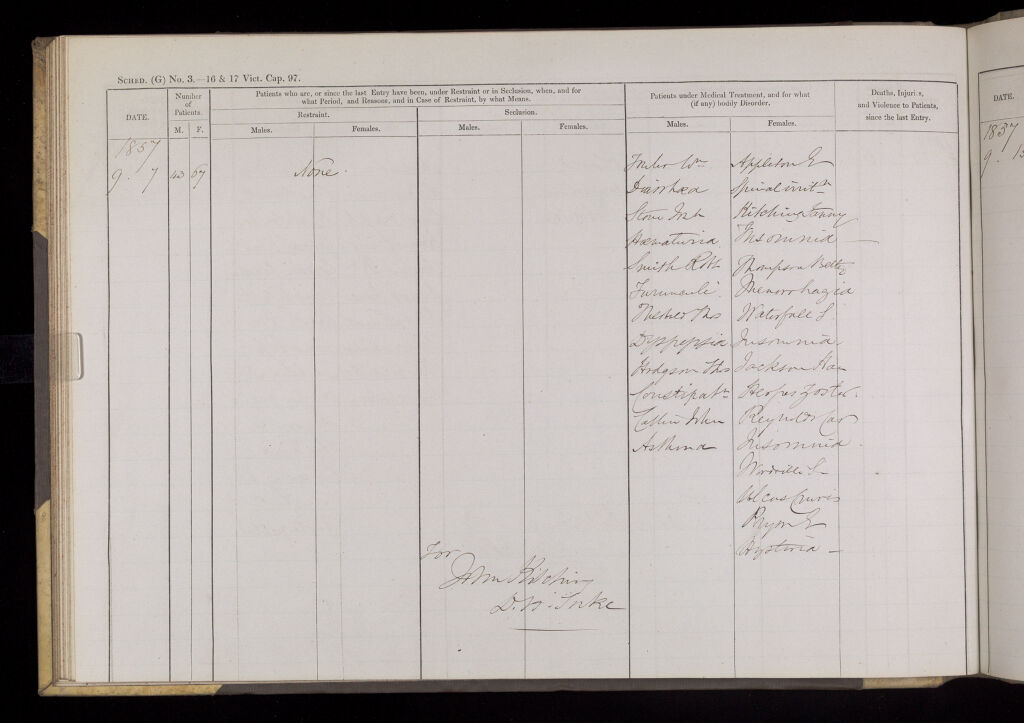 SCHED. (G) No. 3.—16 & 17 Vict. Cap. 97.
DATE.
Number of Patients.
M. F.
Patients who are, or since the last Entry have been, under Restraint or in Seclusion, when, and for
what Period, and Reasons, and in Case of Restraint, by what Means.
Restraint.
Seclusion.
Males. Females. Males. Females.
Patients under Medical Treatment, and for what
(if any) bodily Disorder.
Males. Females.
Deaths, Injuries,
and Violence to Patients,
since the last Entry.
DATE.
1857
9. 7 43 67 None.
Wm Appleton E
Diarrhœa Spinal irritn
Stone Kitching Fanny
Hæmaturia Insomnia —
Smith Robt Thompson Betty
Furunculi. Menorrhagia
Ths Waterfall S
Dyspepsia Insomnia
Hodgson Ths Jackson Han
Constipatn Herpes Zoster.
John Reynolds Car
Asthma Insomnia.
S—
Ulcus Cruris
Pryor E
Hysteria —
For
John Kitching
D. H. Tuke
1857
9.